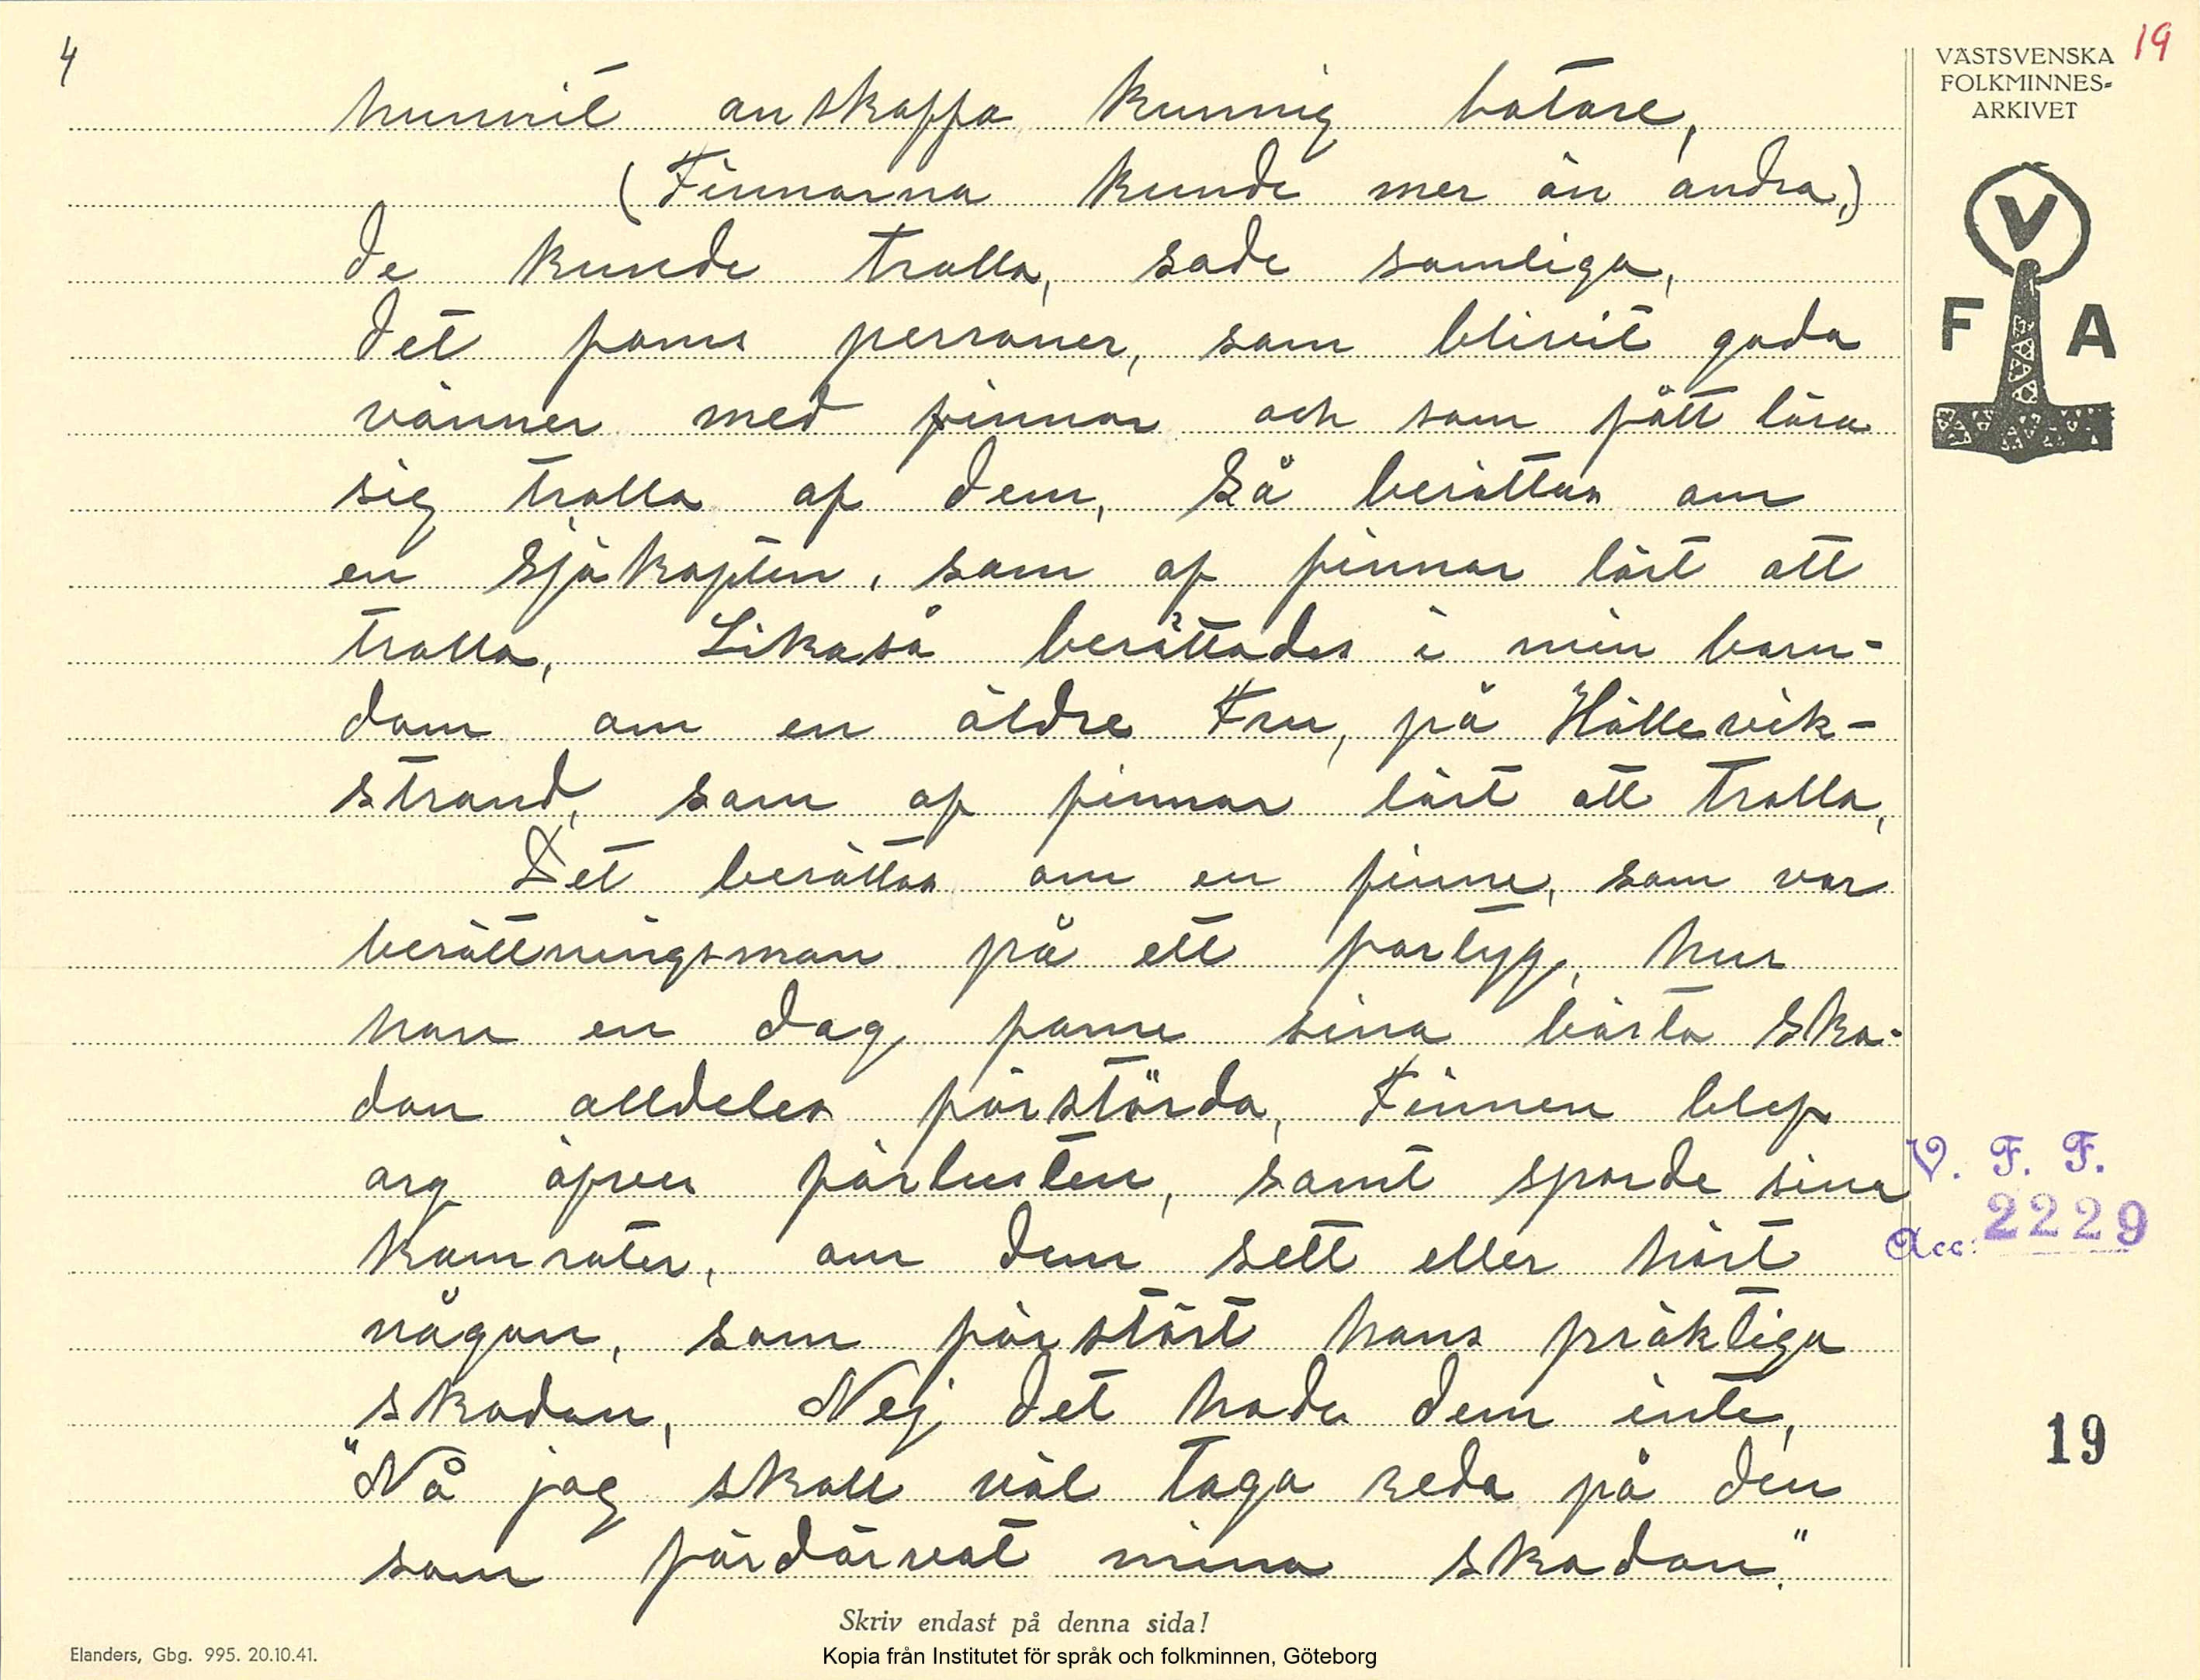 4
19
VÄSTSVENSKA
FOLKMINNES-
ARKIVET
V
F A
hunnit anskaffa kunnig botare,
(Finnarna kunde mer än andra,)
de kunde trolla, sade somliga,
det fanns personer, som blivit goda
vänner med finnar och som fått lära
sig trolla af dem, Så berättas om
en Sjökapten, som af finnar lärt att
trolla, Likaså berättades i min barn-
dom om en äldre Fru, på Hällevik-
strand, som af finnar lärt att trolla,
Det berättas om en finne, som var
besättningsman på ett fartyg, hur
han en dag fann sina bästa Sko-
don alldeles förstörda, Finnen blef
arg öfver förlusten, samt sporde sina
kamrater, om dem sett eller hört
någon, som förstört hans präktiga
skodon, Nej det hade dem inte,
"Nå jag skall väl taga reda på den
som fördärvat mina skodon."
V. F. F.
Acc: 2229
19
Skriv endast på denna sida!
Elanders, Gbg. 995. 20.10.41.
Kopia från Institutet för språk och folkminnen, Göteborg